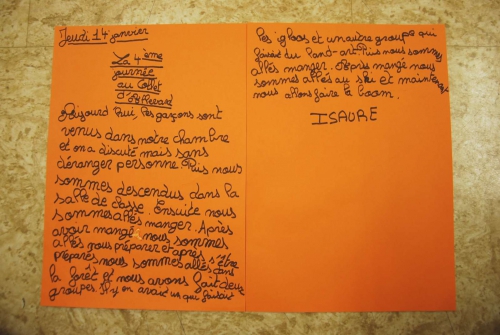 Jeudi 14 janvier
La 4ème
journée
au Collet
d'Allevard
Aujourd'hui, les garçons sont
venus dans notre chambre
et on a discuté mais sans
déranger personne. Puis nous
sommes descendus dans la
salle de classe. Ensuite nous
sommes allés manger. Après
avoir mangé nous sommes
allés nous préparer et après s'être
préparés nous sommes allés dans
la forêt et nous avons fait deux
groupes. Il y en avait un qui faisait
les igloos et un autre groupe qui
faisait du land-art. Puis nous sommes
allés manger. Après mangé nous
sommes allés au ski et maintenant
nous allons faire la boom.
ISAURE